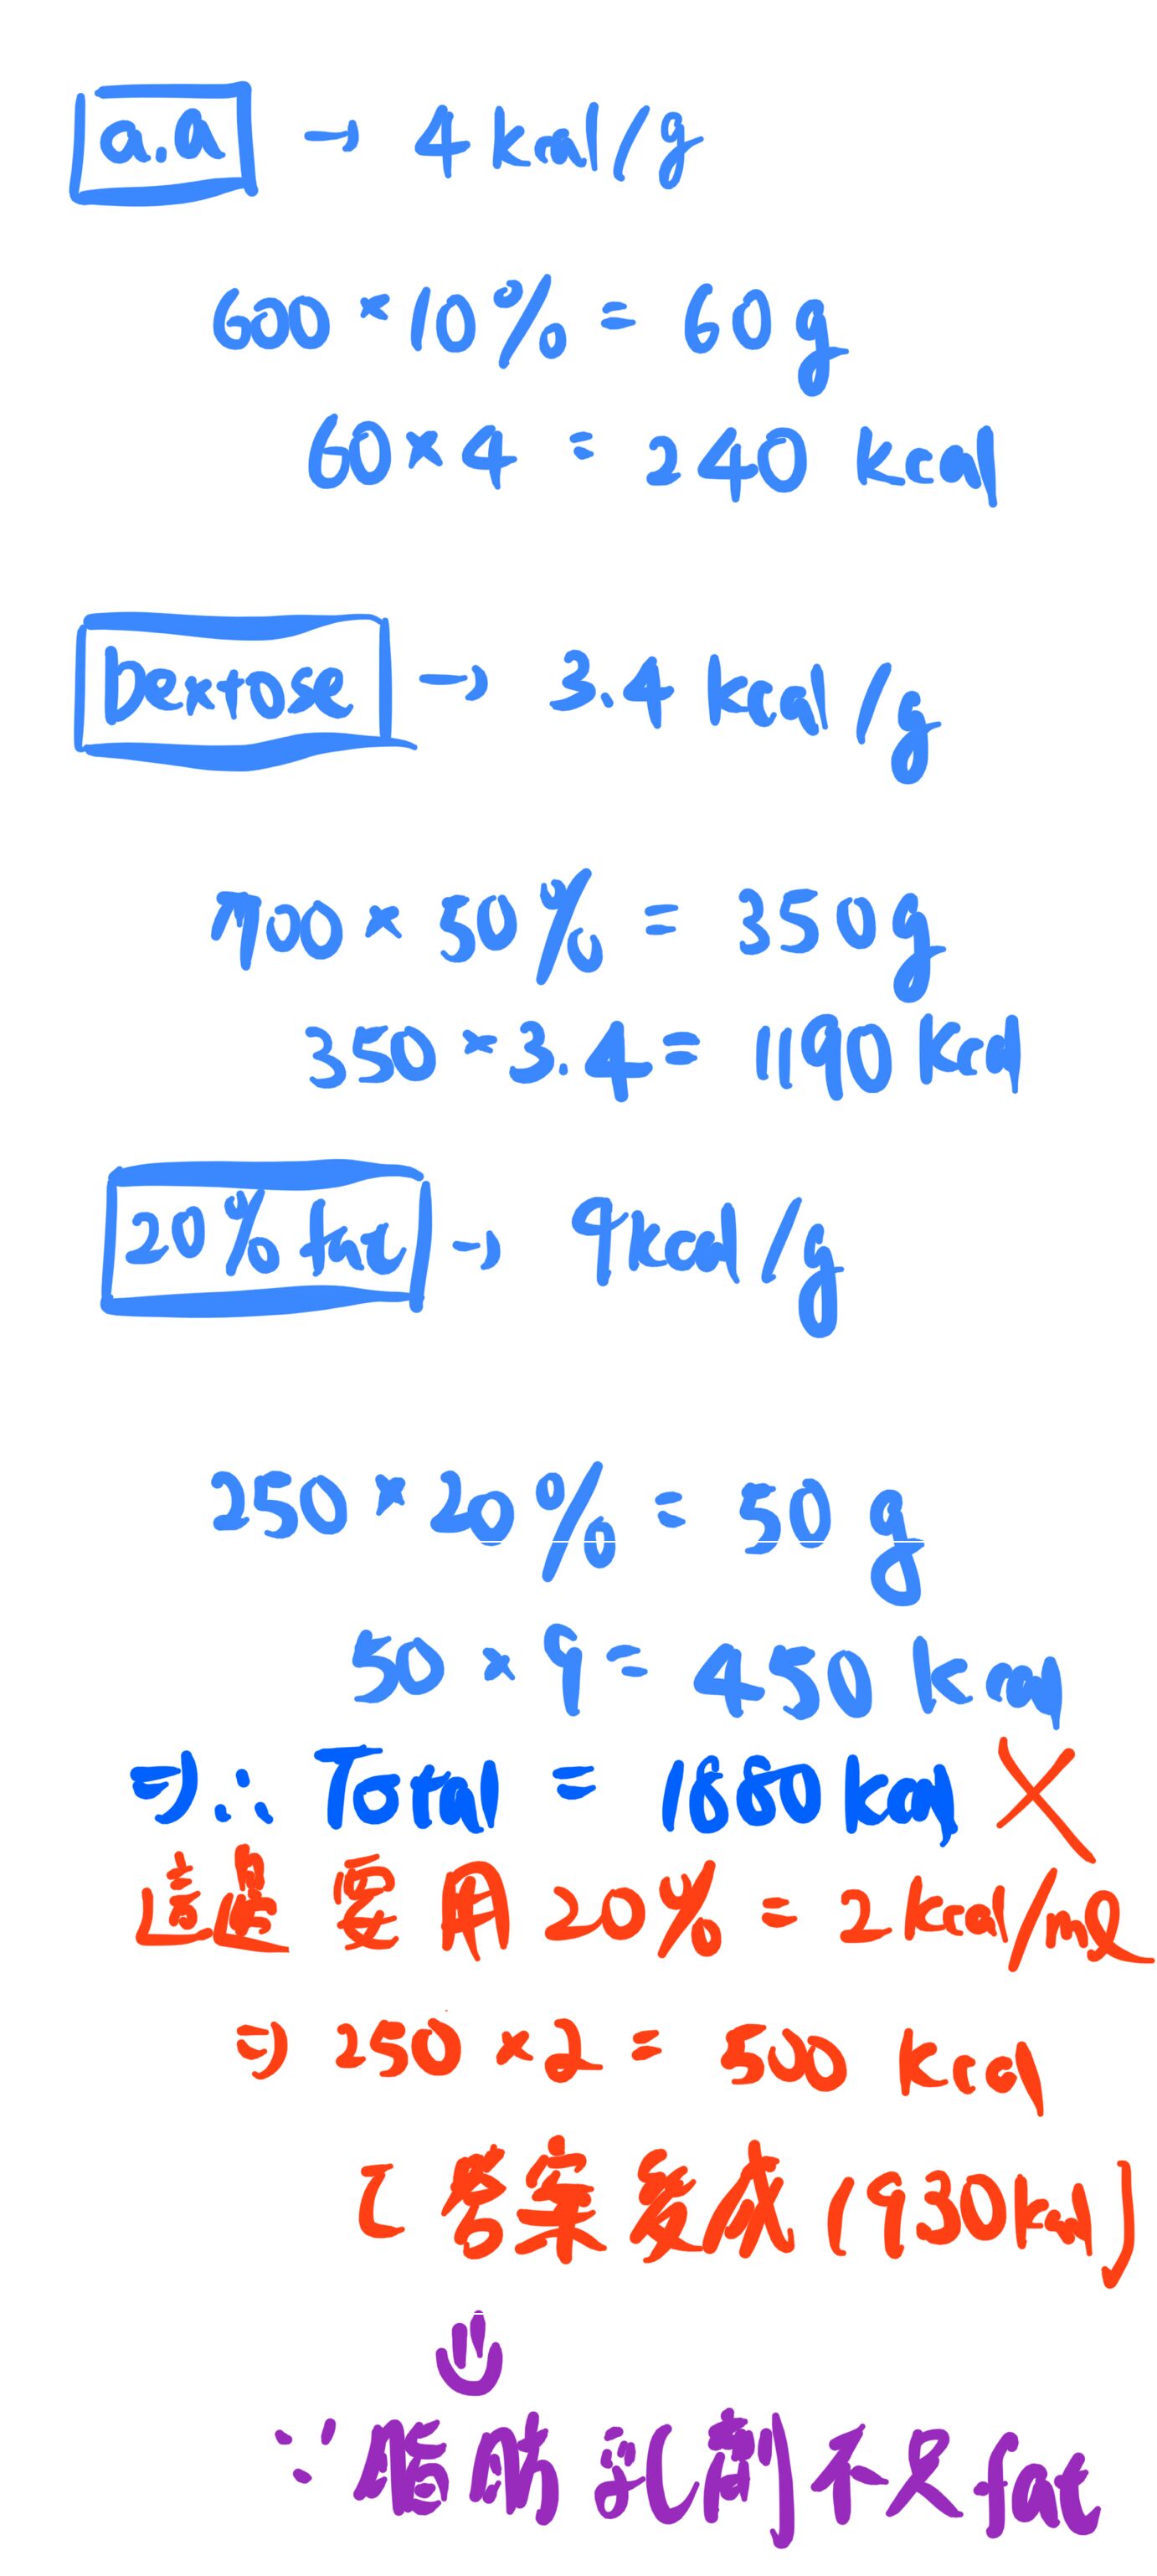 a.a → 4 kcal/g
600 × 10% = 60g
60×4 = 240 kcal
Dextose → 3.4 kcal/g
700 × 50% = 350g
350 × 3.4 = 1190 kcal
20% fat → 9kcal/g
250 × 20% = 50 g
50 × 9 = 450 kcal
⇒ ∴ Total = 1880 kcal ×
這邊要用 20% = 2 kcal/ml
⇒ 250 × 2 = 500 kcal
[答案變成 1930 kcal]
∵ 脂肪乳劑不只fat